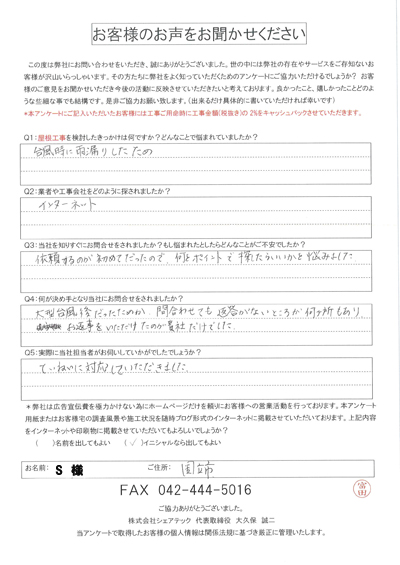 お客様のお声をお聞かせください
この度は弊社にお問い合わせをいただき、誠にありがとうございました。世の中には弊社の存在やサービスをご存知ないお
客様が沢山いらっしゃいます。その方たちに弊社をよく知っていただくためのアンケートにご協力いただけるでしょうか? お客
様のご意見をお聞かせいただき今後の活動に反映させていただきたいと考えております。良かったこと、嬉しかったことどのよ
うな些細な事でも結構です。是非ご協力お願い致します。(出来るだけ具体的に書いていただければ幸いです)
*本アンケートにご記入いただいたお客様には工事ご用命時に工事金額(税抜き)の 2%をキャッシュバックさせていただきます。
Q1:屋根工事を検討したきっかけは何ですか?どんなことで悩まれていましたか?
台風時に雨漏りしたため
Q2:業者や工事会社をどのように探されましたか?
インターネット
Q3:当社を知りすぐにお問合せをされましたか?もし悩まれたとしたらどんなことがご不安でしたか?
依頼するのが初めてだったので、何をポイントで探したらいいかを悩みました
Q4:何が決め手となり当社にお問合せをされましたか?
大型台風後だったためか、問合わせても返答がないところが何ヶ所もあり
お返事をいただけたのが貴社だけでした。
Q5:実際に当社担当者がお伺いしていかがでしたでしょうか?
ていねいに対応していただきました
*弊社は広告宣伝費を極力かけない為にホームページだけを頼りにお客様への営業活動を行っております。本アンケート
用紙またはお客様宅の調査風景や施工状況を随時ブログ形式のインターネットに掲載させていただいております。上記内容
をインターネットや印刷物に掲載させていただいてもよろしいでしょうか?
( )名前を出してもよい (✓)イニシャルなら出してもよい
お名前: S 様 ご住所: 国立市
FAX 042-444-5016
富田
ご協力ありがとうございました。
株式会社シェアテック 代表取締役 大久保 誠二
当アンケートで取得したお客様の個人情報は関係法規に基づき厳正に管理いたします。